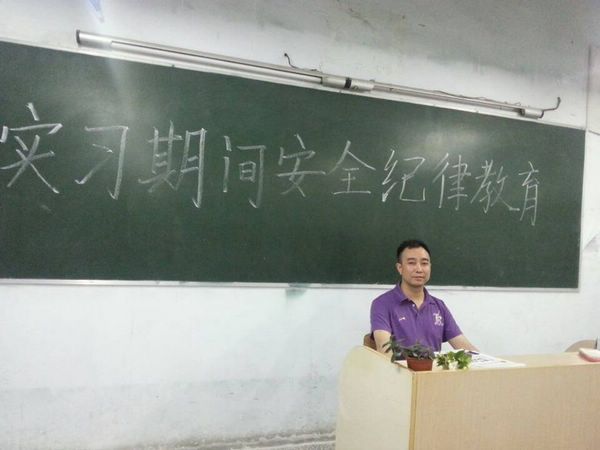 实习期间安全纪律教育